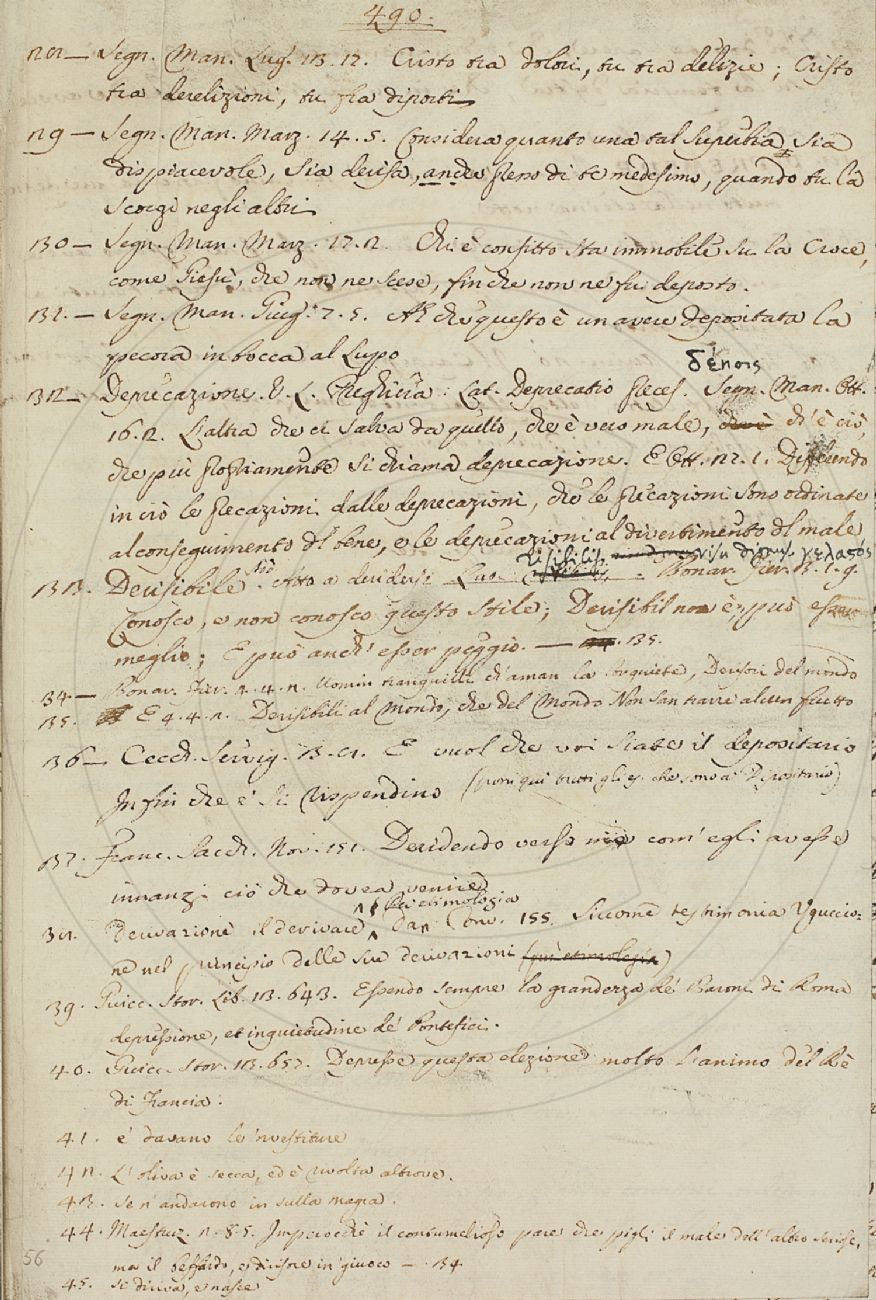 490.
128 — Segn. Man. Lug. 13. 12. Cristo tra dolori, tu tra delizie; Cristo
tra derelizioni, tu fra diporti
129 — Segn. Man. Marz. 14. 5. Considera quanto una tal superbia sia
dispiacevole, sia derisa, anche presso di te medesimo, quando tu la
scorgi negli altri
130 — Segn. Man. Marz. 17. 2. Chi è confitto sta immobile su la Croce,
come Giesù, che non ne scese, finche non ne fu deposto.
131. — Segn. Man. Giug. 7. 5. Ah che questo è un avere depositata la
pecora in bocca al Lupo
δέησις
132 — Deprecazione. V. L. Lat. Deprecatio preces. Segn. Man. Ott.
16. 2. L'altra che ci salva da quello, che è vero male, ch'è ciò,
che più propriamente si chiama deprecazione. E Ott. 22. 1. Differendo
in ciò le precazioni dalle deprecazioni, che le precazioni sono ordinate
al conseguimento del bene, e le deprecazioni al divertimento del male
risibilis γελαστός
133. Derisibile Atto a deridersi Buonar. Fier. 3. 1. 9.
Conosco, e non conosco questo stile; Derisibil non è, può esser
meglio; E può anch' esser peggio. — 135.
34 — Bonar. Fier. 4. 4. 2. Uomin tranquilli ch'aman la lor quiete, Derisori del mondo
35. E 4. 4. 2. Derisibili al Mondo, che del Mondo Non san trarre alcun frutto
36 — Cecch. Servig. 3. E vuol che voi siate il depositario
Infin che e' si rispendino
137. Franc. Sacch. Nov. 151. Deridendo verso me com' egli avesse
innanzi ciò che dovea venire
etimologia
38. Derivazione il derivare, Dan. Conv. 155. Siccome testimonia Uguccio-
ne nel principio delle sue derivazioni (più etimologia)
39. Guicc. Stor. Lib. 13. 643. Essendo sempre la grandezza de' Baroni di Roma
depressione, et inquietudine de' Pontefici.
40. Guicc. Stor. 13. 657. Depresse questa elezione molto l'animo del Re
di Francia.
41. e' davano le 'nvestiture
42. L'oliva è secca, ed è rivolta altrove.
43. Se n' andarono in sulla magra.
44. Maestruz. 2. 8. 5. Imperocchè il contumelioso pare che pigli il male dell' altro
ma il beffardo, e derisore in giuoco — 34
56
45. Si deriva, e nasce